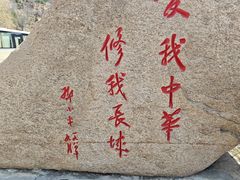 我中华
修我長城
邓小平